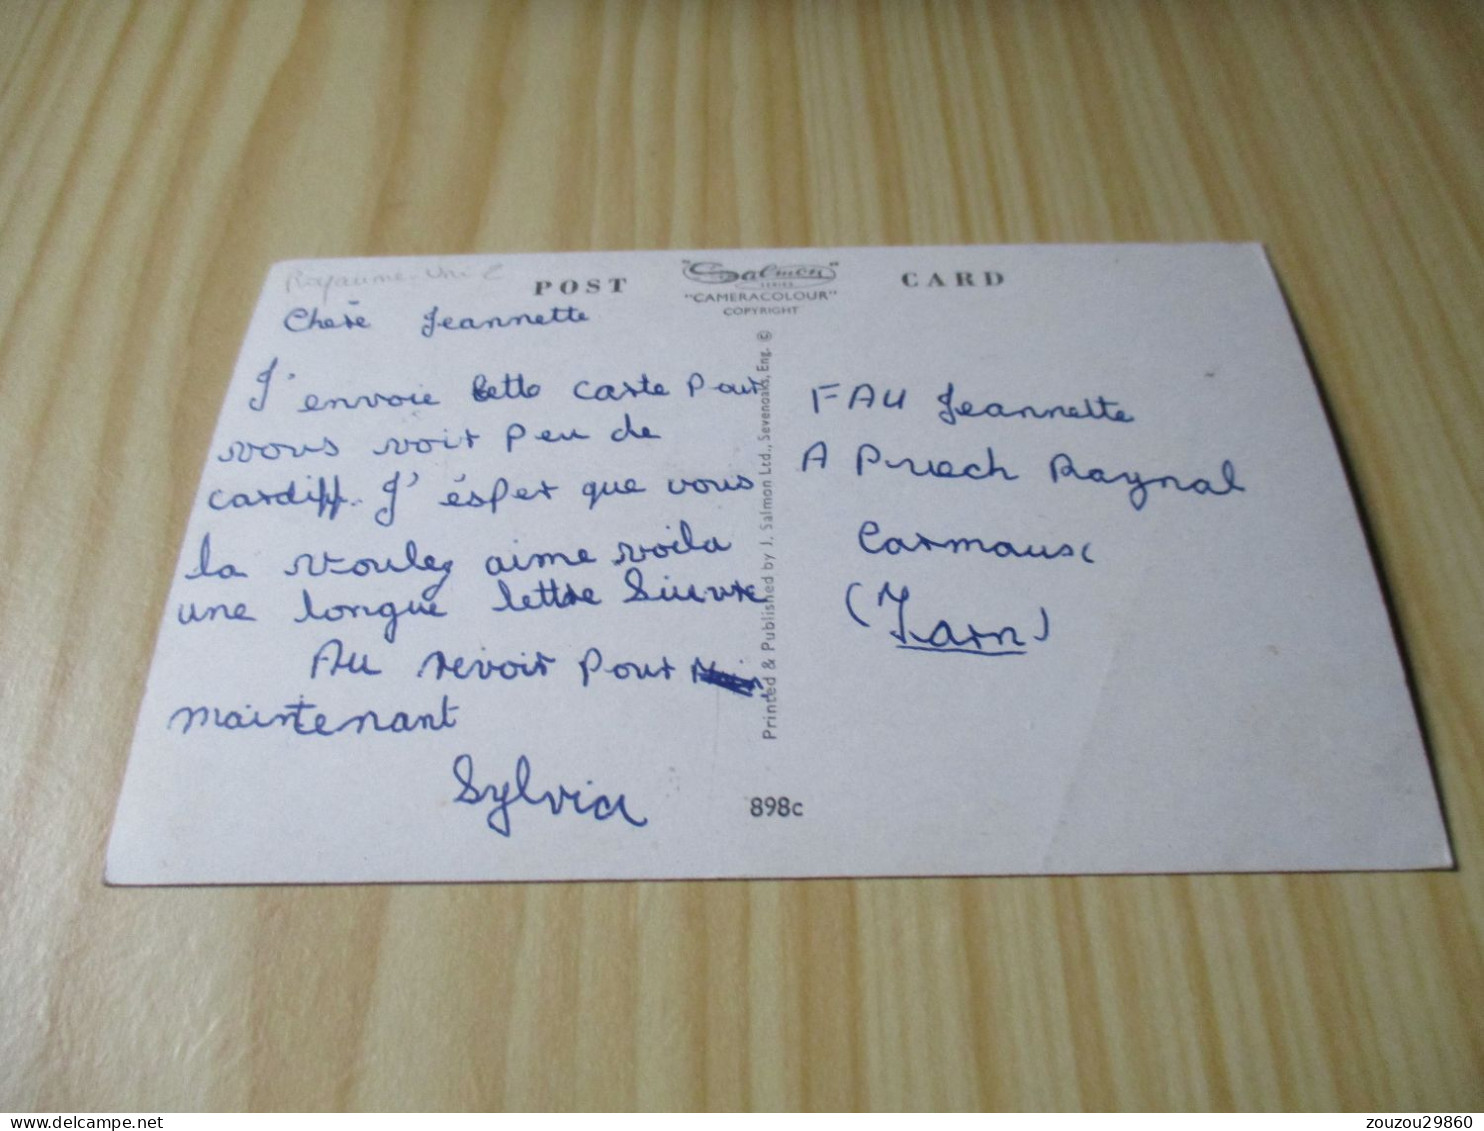 Royaume-Uni
POST "Salmon" CARD
SERIES
"CAMERACOLOUR"
COPYRIGHT
Cherè Jeannette
J'envoie cette carte pour
vous voir peu de
cardiff. J'ésper que vous
la voulez aime voila
une longue lettre Suivre
Au revoir pour
maintenant
Sylvia
Printed & Published by J. Salmon Ltd., Sevenoaks, Eng. ©
898c
FAU Jeannette
A Puech Raynal
Carmaux
(Tarn)
zouzou29860